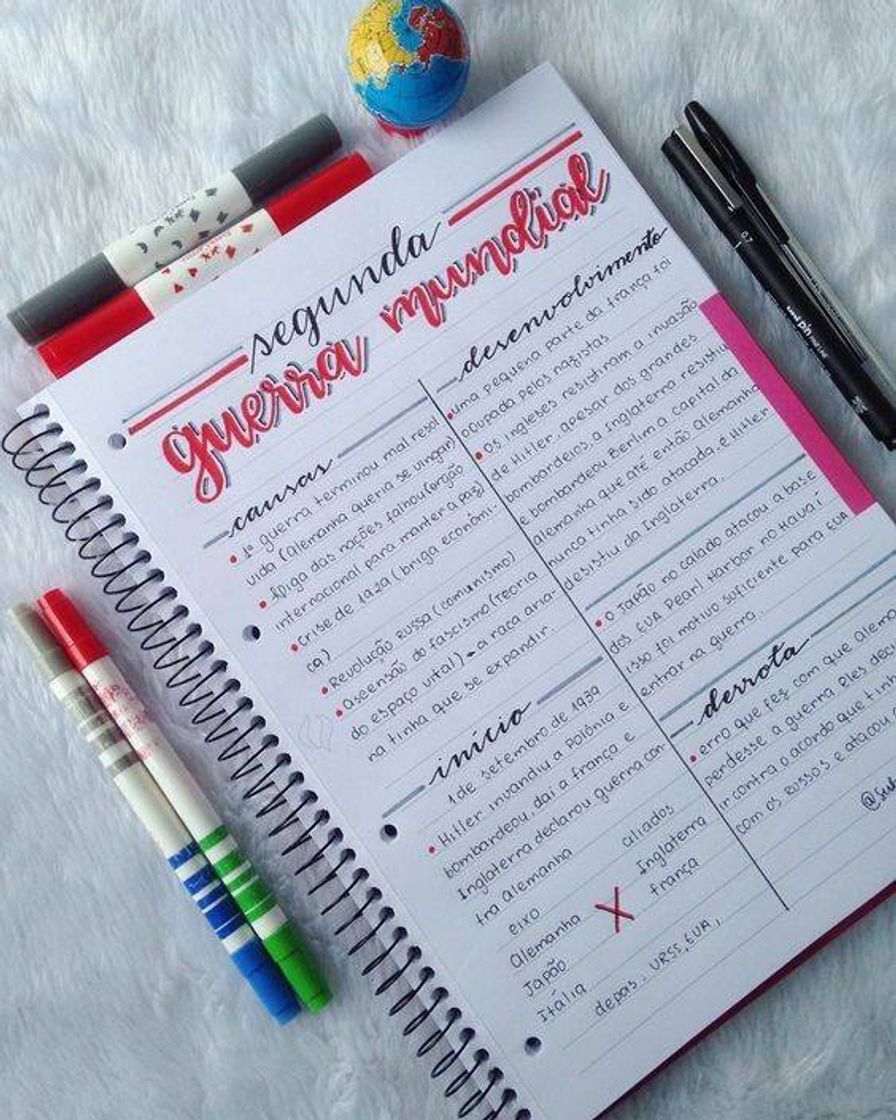 segunda
guerra mundial
causas
1ª guerra terminou mal resol
vida (Alemanha queria se vingar)
Aliga das nações falhou (orgão
internacional para manter a paz)
Crise de 1929 (briga econômi-
ca)
Revolução Russa (comunismo)
Ascensão do fascismo (Teoria
do espaço vital) → a raça aria-
na tinha que se expandir.
início
1 de setembro de 1939
Hitler invandiu a Polônia e
bombardeou, daí a frança e
Inglaterra declarou guerra con-
tra Alemanha
eixo
aliados
Alemanha X Inglaterra
Japão
frança
Itália
depois. URSS, EUA,
desenvolvimento
uma pequena parte da frança foi
ocupada pelos nazistas
Os ingleses resistiram a invasão
de Hitler, apesar dos grandes
bombardeios, a Inglaterra resistiu
e bombardeou Berlim a capital da
Alemanha que até então Alemanha
nunca tinha sido atacada. e Hitler
desistiu da Inglaterra.
O Japão no calado atacou a base
dos EUA Pearl Harbor no Havaí
isso foi motivo suficiente para EUA
entrar na guerra.
derrota
erro que fez com que
perdesse a guerra Eles
ir contra o acordo que
com os Russos e atacou
0.7
uni pin FINE LINE